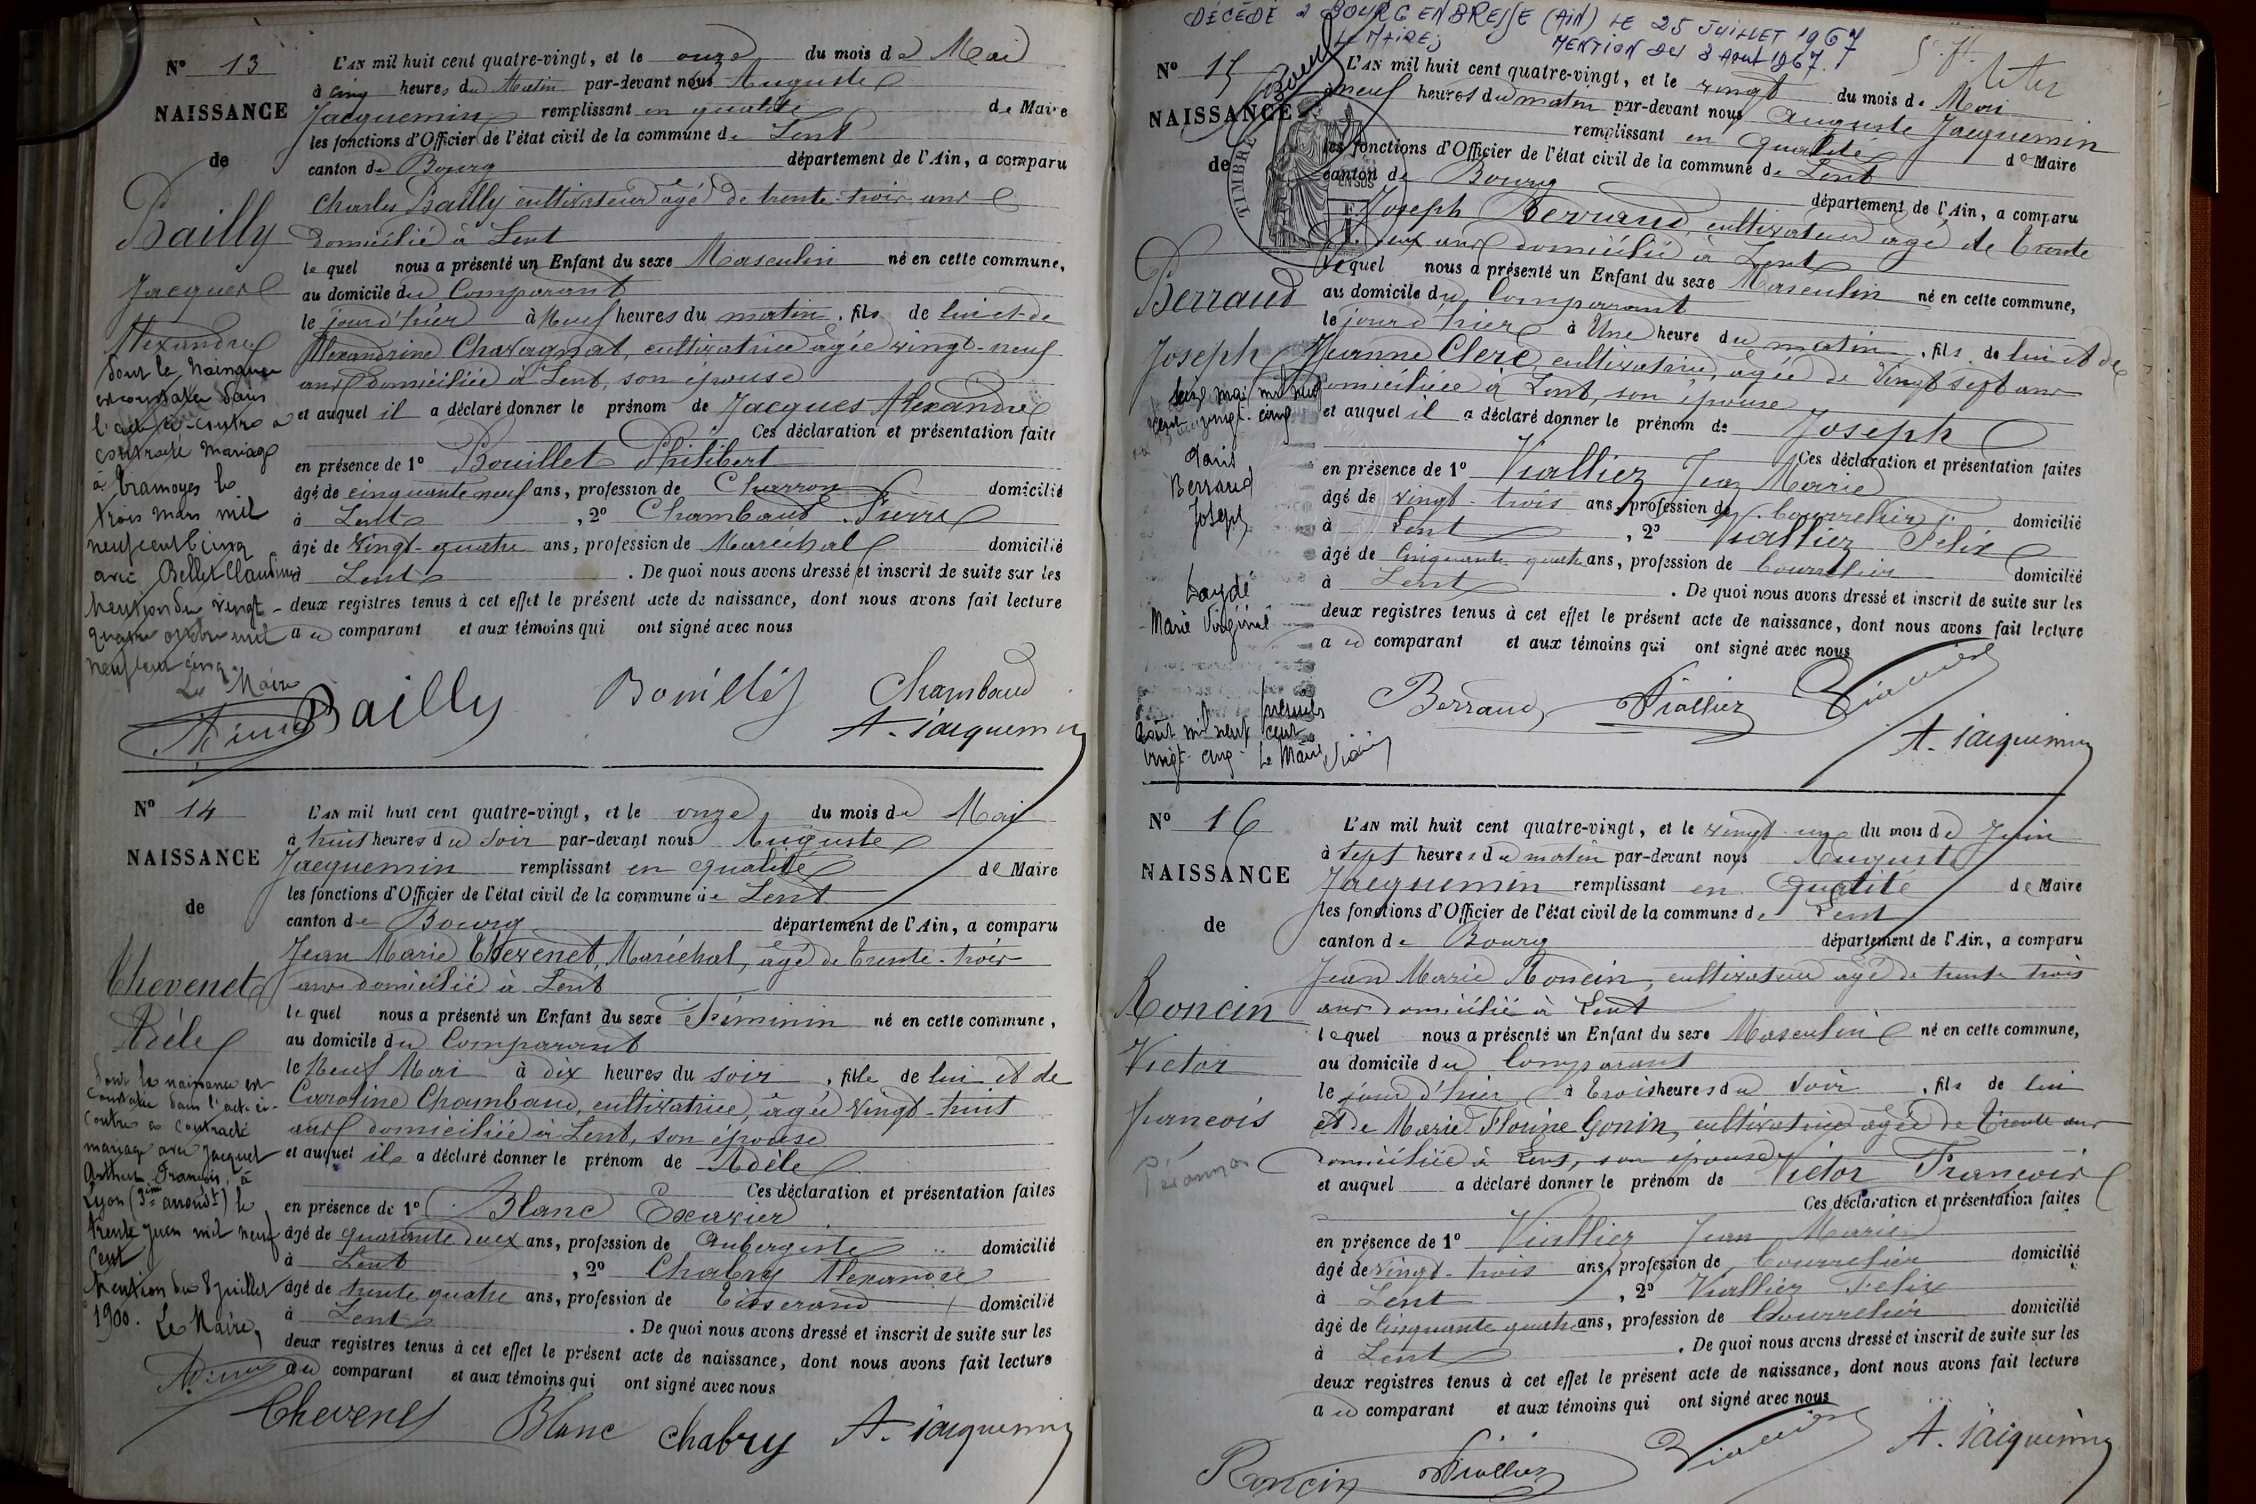 N° 13
NAISSANCE
de
Bailly
Jacques
Alexandre
L'AN mil huit cent quatre-vingt, et le onze du mois de Mai
à cinq heures du Matin par-devant nous Auguste
Jacquemin remplissant en qualité de Maire
les fonctions d'Officier de l'état civil de la commune de Lent
canton de Bourg département de l'Ain, a comparu
Charles Bailly cultivateur âgé de trente trois ans
domicilié à Lent
lequel nous a présenté un Enfant du sexe Masculin né en cette commune,
au domicile du Comparant
le jour d'hier à Neuf heures du matin, fils de lui et de
Alexandrine Chavagnat, cultivatrice âgée vingt-neuf
ans domiciliée à Lent, son épouse
et auquel il a déclaré donner le prénom de Jacques Alexandre
Ces déclaration et présentation faites
en présence de 1° Bouillet Philibert
âgé de cinquante neuf ans, profession de Charron domicilié
à Lent, 2° Chambaud Pierre
âgé de vingt-quatre ans, profession de Maréchal domicilié
à Lent. De quoi nous avons dressé et inscrit de suite sur les
deux registres tenus à cet effet le présent acte de naissance, dont nous avons fait lecture
au comparant et aux témoins qui ont signé avec nous
dont la naissance
est constatée dans
l'acte ci-contre a
contracté mariage
à Tramoyes le
trois mars mil
neuf cent cinq
avec Bellet Claudine
Mention du vingt-
quatre octobre mil
neuf cent cinq.
Le Maire
Bailly Bouillet Chambaud
A. Jacquemin
N° 14
NAISSANCE
de
Thevenet
Adèle
L'AN mil huit cent quatre-vingt, et le onze du mois de Mai
à huit heures du soir par-devant nous Auguste
Jacquemin remplissant en qualité de Maire
les fonctions d'Officier de l'état civil de la commune de Lent
canton de Bourg département de l'Ain, a comparu
Jean Marie Thevenet, Maréchal, âgé de trente-trois
ans domicilié à Lent
lequel nous a présenté un Enfant du sexe Féminin né en cette commune,
au domicile du Comparant
le Neuf Mai à dix heures du soir, fille de lui et de
Caroline Chambaud, cultivatrice, âgée vingt-huit
ans domiciliée à Lent, son épouse
et auquel il a déclaré donner le prénom de Adèle
Ces déclaration et présentation faites
en présence de 1° Blanc Exavier
âgé de quarante deux ans, profession de Aubergiste domicilié
à Lent, 2° Chabry Alexandre
âgé de trente quatre ans, profession de Tisserand domicilié
à Lent. De quoi nous avons dressé et inscrit de suite sur les
deux registres tenus à cet effet le présent acte de naissance, dont nous avons fait lecture
au comparant et aux témoins qui ont signé avec nous
dont la naissance est
constatée dans l'acte ci-
contre a contracté
mariage avec Jacquet
Arthur François, à
Lyon (3ème arrondt) le
trente juin mil neuf
cent
Mention du 8 juillet
1900. Le Maire,
Thevenet Blanc Chabry A. Jacquemin
DÉCÉDÉ à BOURG EN BRESSE (AIN) LE 25 JUILLET 1967
LE MAIRE; MENTION DU 3 Aout 1967.
N° 15
NAISSANCE
de
TIMBRE
Berraud
Joseph
L'AN mil huit cent quatre-vingt, et le vingt du mois de Mai
à neuf heures du matin par-devant nous Auguste Jacquemin
remplissant en qualité de Maire
les fonctions d'Officier de l'état civil de la commune de Lent
canton de Bourg département de l'Ain, a comparu
Joseph Berraud, cultivateur âgé de trente
deux ans domicilié à Lent
lequel nous a présenté un Enfant du sexe Masculin né en cette commune,
au domicile du Comparant
le jour d'hier à Une heure du matin, fils de lui et de
Jeanne Clerc, cultivatrice, âgée de vingt sept ans
domiciliée à Lent, son épouse
et auquel il a déclaré donner le prénom de Joseph
Ces déclaration et présentation faites
en présence de 1° Viallier Jean Marie
âgé de vingt-trois ans, profession de bourrelier domicilié
à Lent, 2° Viallier Felix
âgé de cinquante quatre ans, profession de bourrelier domicilié
à Lent. De quoi nous avons dressé et inscrit de suite sur les
deux registres tenus à cet effet le présent acte de naissance, dont nous avons fait lecture
au comparant et aux témoins qui ont signé avec nous
seize mai mil neuf
cent vingt-cinq
Berraud
Joseph
Marie Virginie
août mil neuf cent
vingt-cinq Le Maire
Berraud Viallier Viallier
A. Jacquemin
N° 16
NAISSANCE
de
Roncin
Victor
François
L'AN mil huit cent quatre-vingt, et le vingt-un du mois de Juin
à sept heures du matin par-devant nous Auguste
Jacquemin remplissant en qualité de Maire
les fonctions d'Officier de l'état civil de la commune de Lent
canton de Bourg département de l'Ain, a comparu
Jean Marie Roncin, cultivateur âgé de trente trois
ans domicilié à Lent
lequel nous a présenté un Enfant du sexe Masculin né en cette commune,
au domicile du Comparant
le jour d'hier à trois heures du soir, fils de lui
et de Marie Florine Gonin, cultivatrice âgée de trente ans
domiciliée à Lent, son épouse
et auquel a déclaré donner le prénom de Victor François
Ces déclaration et présentation faites
en présence de 1° Viallier Jean Marie
âgé de vingt-trois ans, profession de bourrelier domicilié
à Lent, 2° Viallier Felix
âgé de cinquante quatre ans, profession de bourrelier domicilié
à Lent. De quoi nous avons dressé et inscrit de suite sur les
deux registres tenus à cet effet le présent acte de naissance, dont nous avons fait lecture
au comparant et aux témoins qui ont signé avec nous
Roncin Viallier Viallier A. Jacquemin